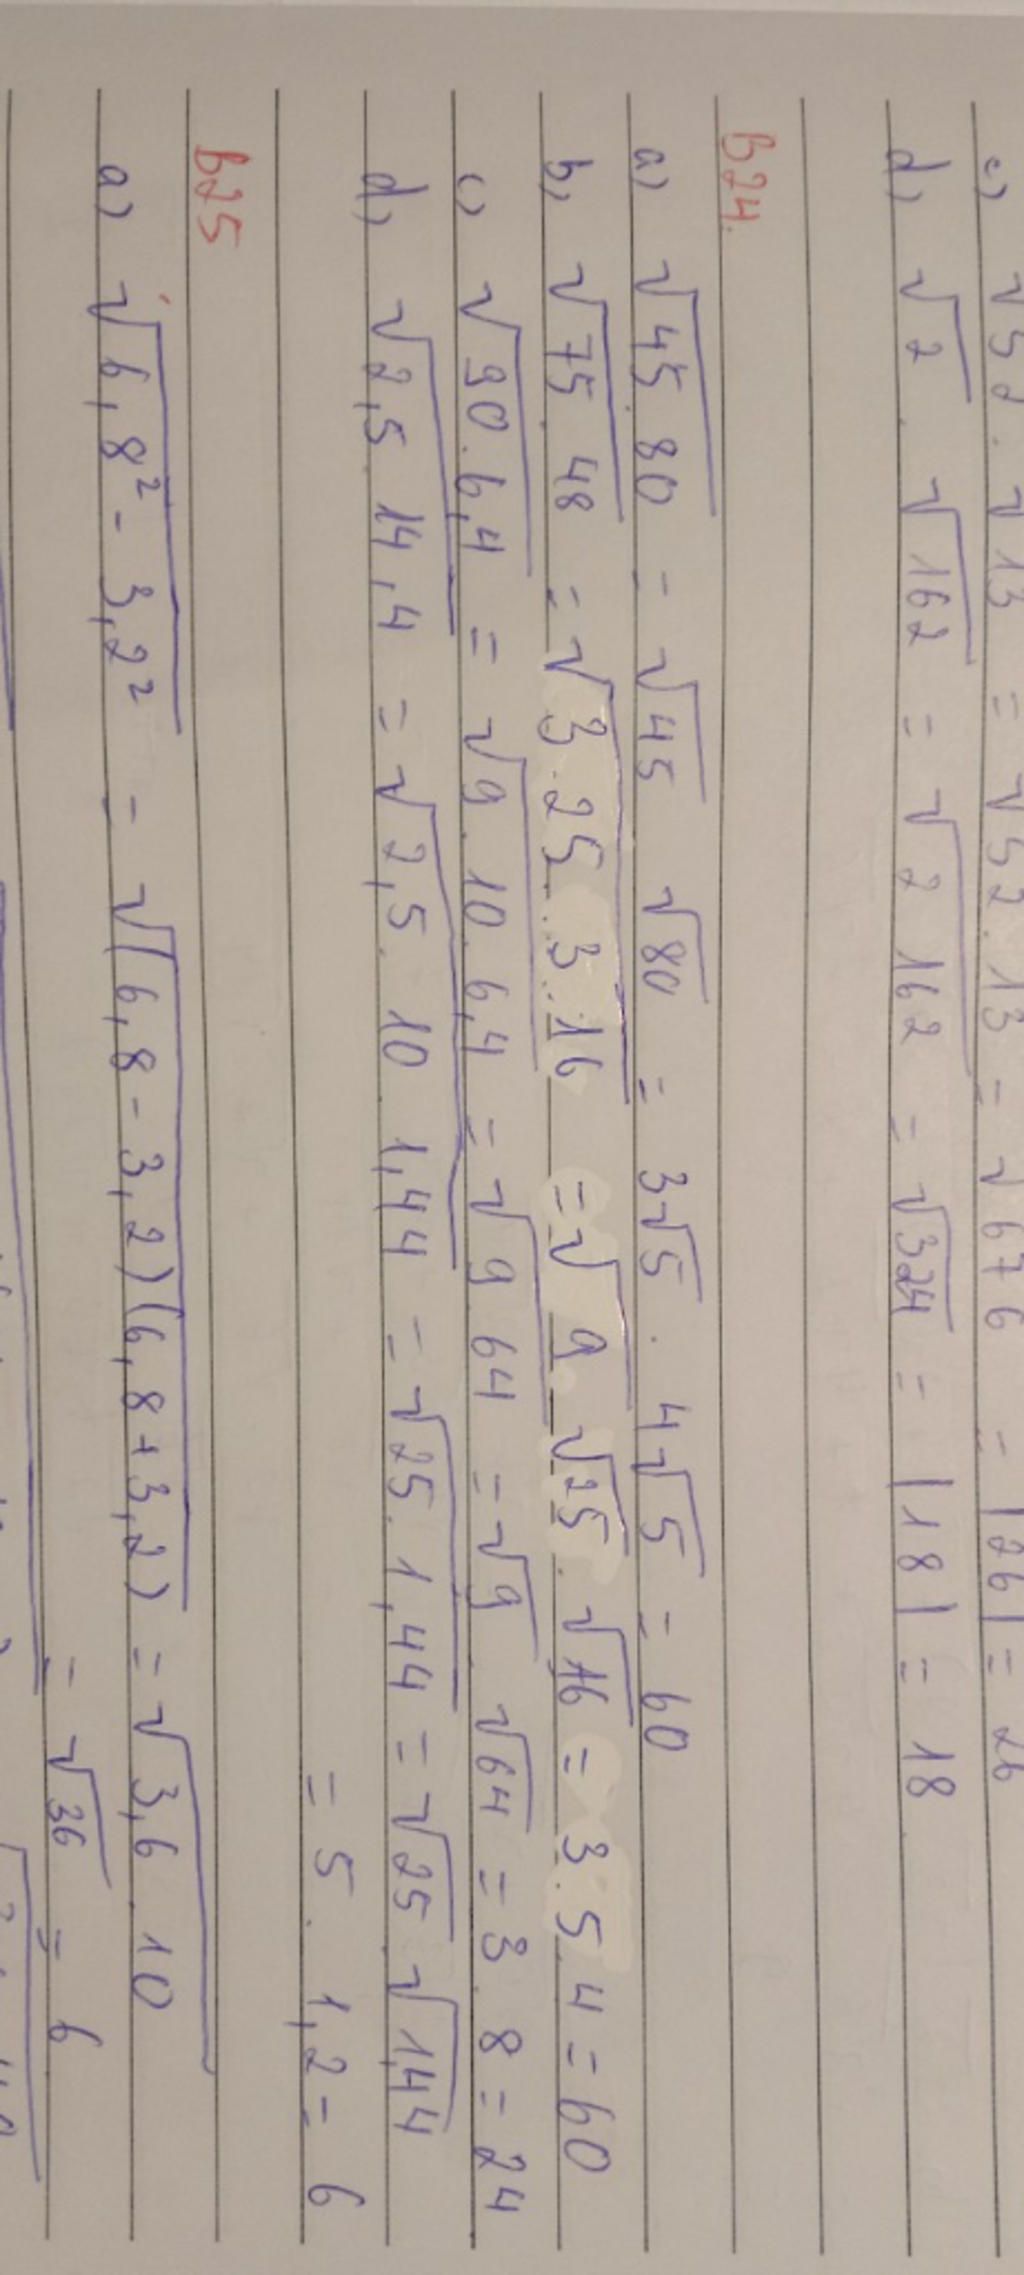 c) √52 . √13 = √52.13 = √676 = |26| = 26
d) √2 . √162 = √2 162 = √324 = |18| = 18
B24.
a) √45.80 = √45 √80 = 3√5 . 4√5 = 60
b) √75.48 = √3.25.3.16 = √9 √25 . √16 = 3.5.4 = 60
c) √90.6,4 = √9.10.6,4 = √9.64 = √9 . √64 = 3.8 = 24
d) √2,5.14,4 = √2,5.10.1,44 = √25.1,44 = √25 √1,44
= 5 . 1,2 = 6
B25
a) √6,8² - 3,2² = √(6,8 - 3,2)(6,8 + 3,2) = √3,6.10
= √36 = 6